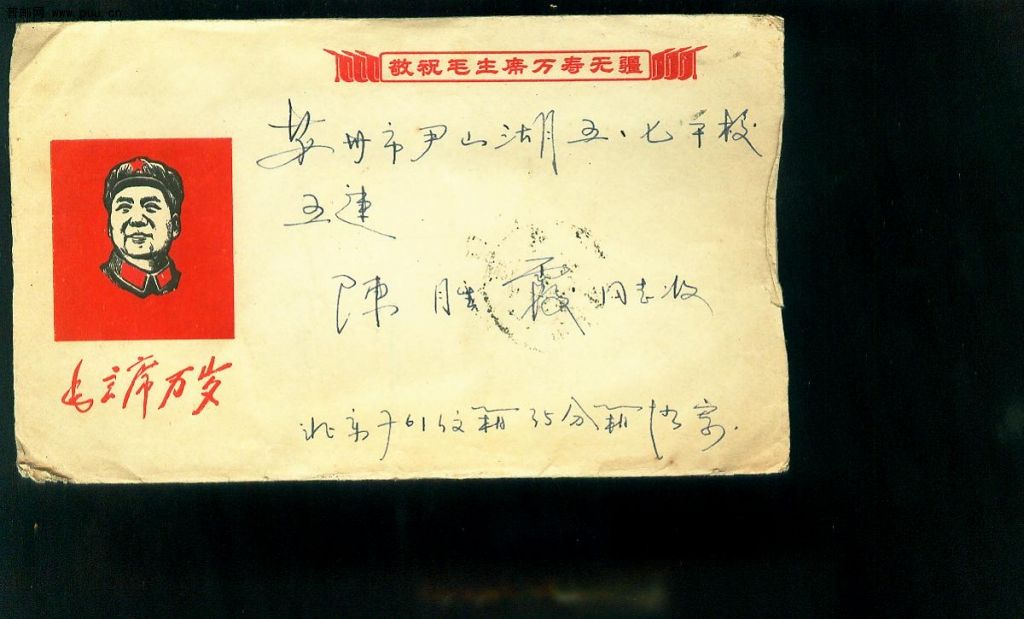 普邮网 www.puu.cn
敬祝毛主席万寿无疆
苏州市尹山湖五、七干校
五连
陈胜霞同志收
毛主席万岁
北京761信箱35分箱